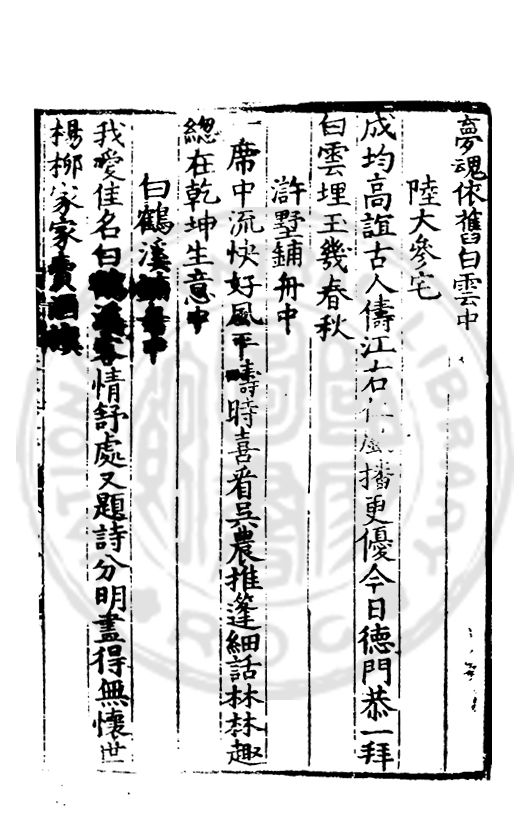 夢魂依舊白雲中
陸大參宅
成均高誼古人儔江右仁風播更優今日德門恭一拜
白雲埋玉幾春秋
滸墅鋪舟中
一席中流快好風平疇時喜看吳農推篷細話林林趣
總在乾坤生意中
白鶴溪舟中
我愛佳名白鶴溪客情舒處又題詩分明畫得無懷世
楊柳家家賣酒旗